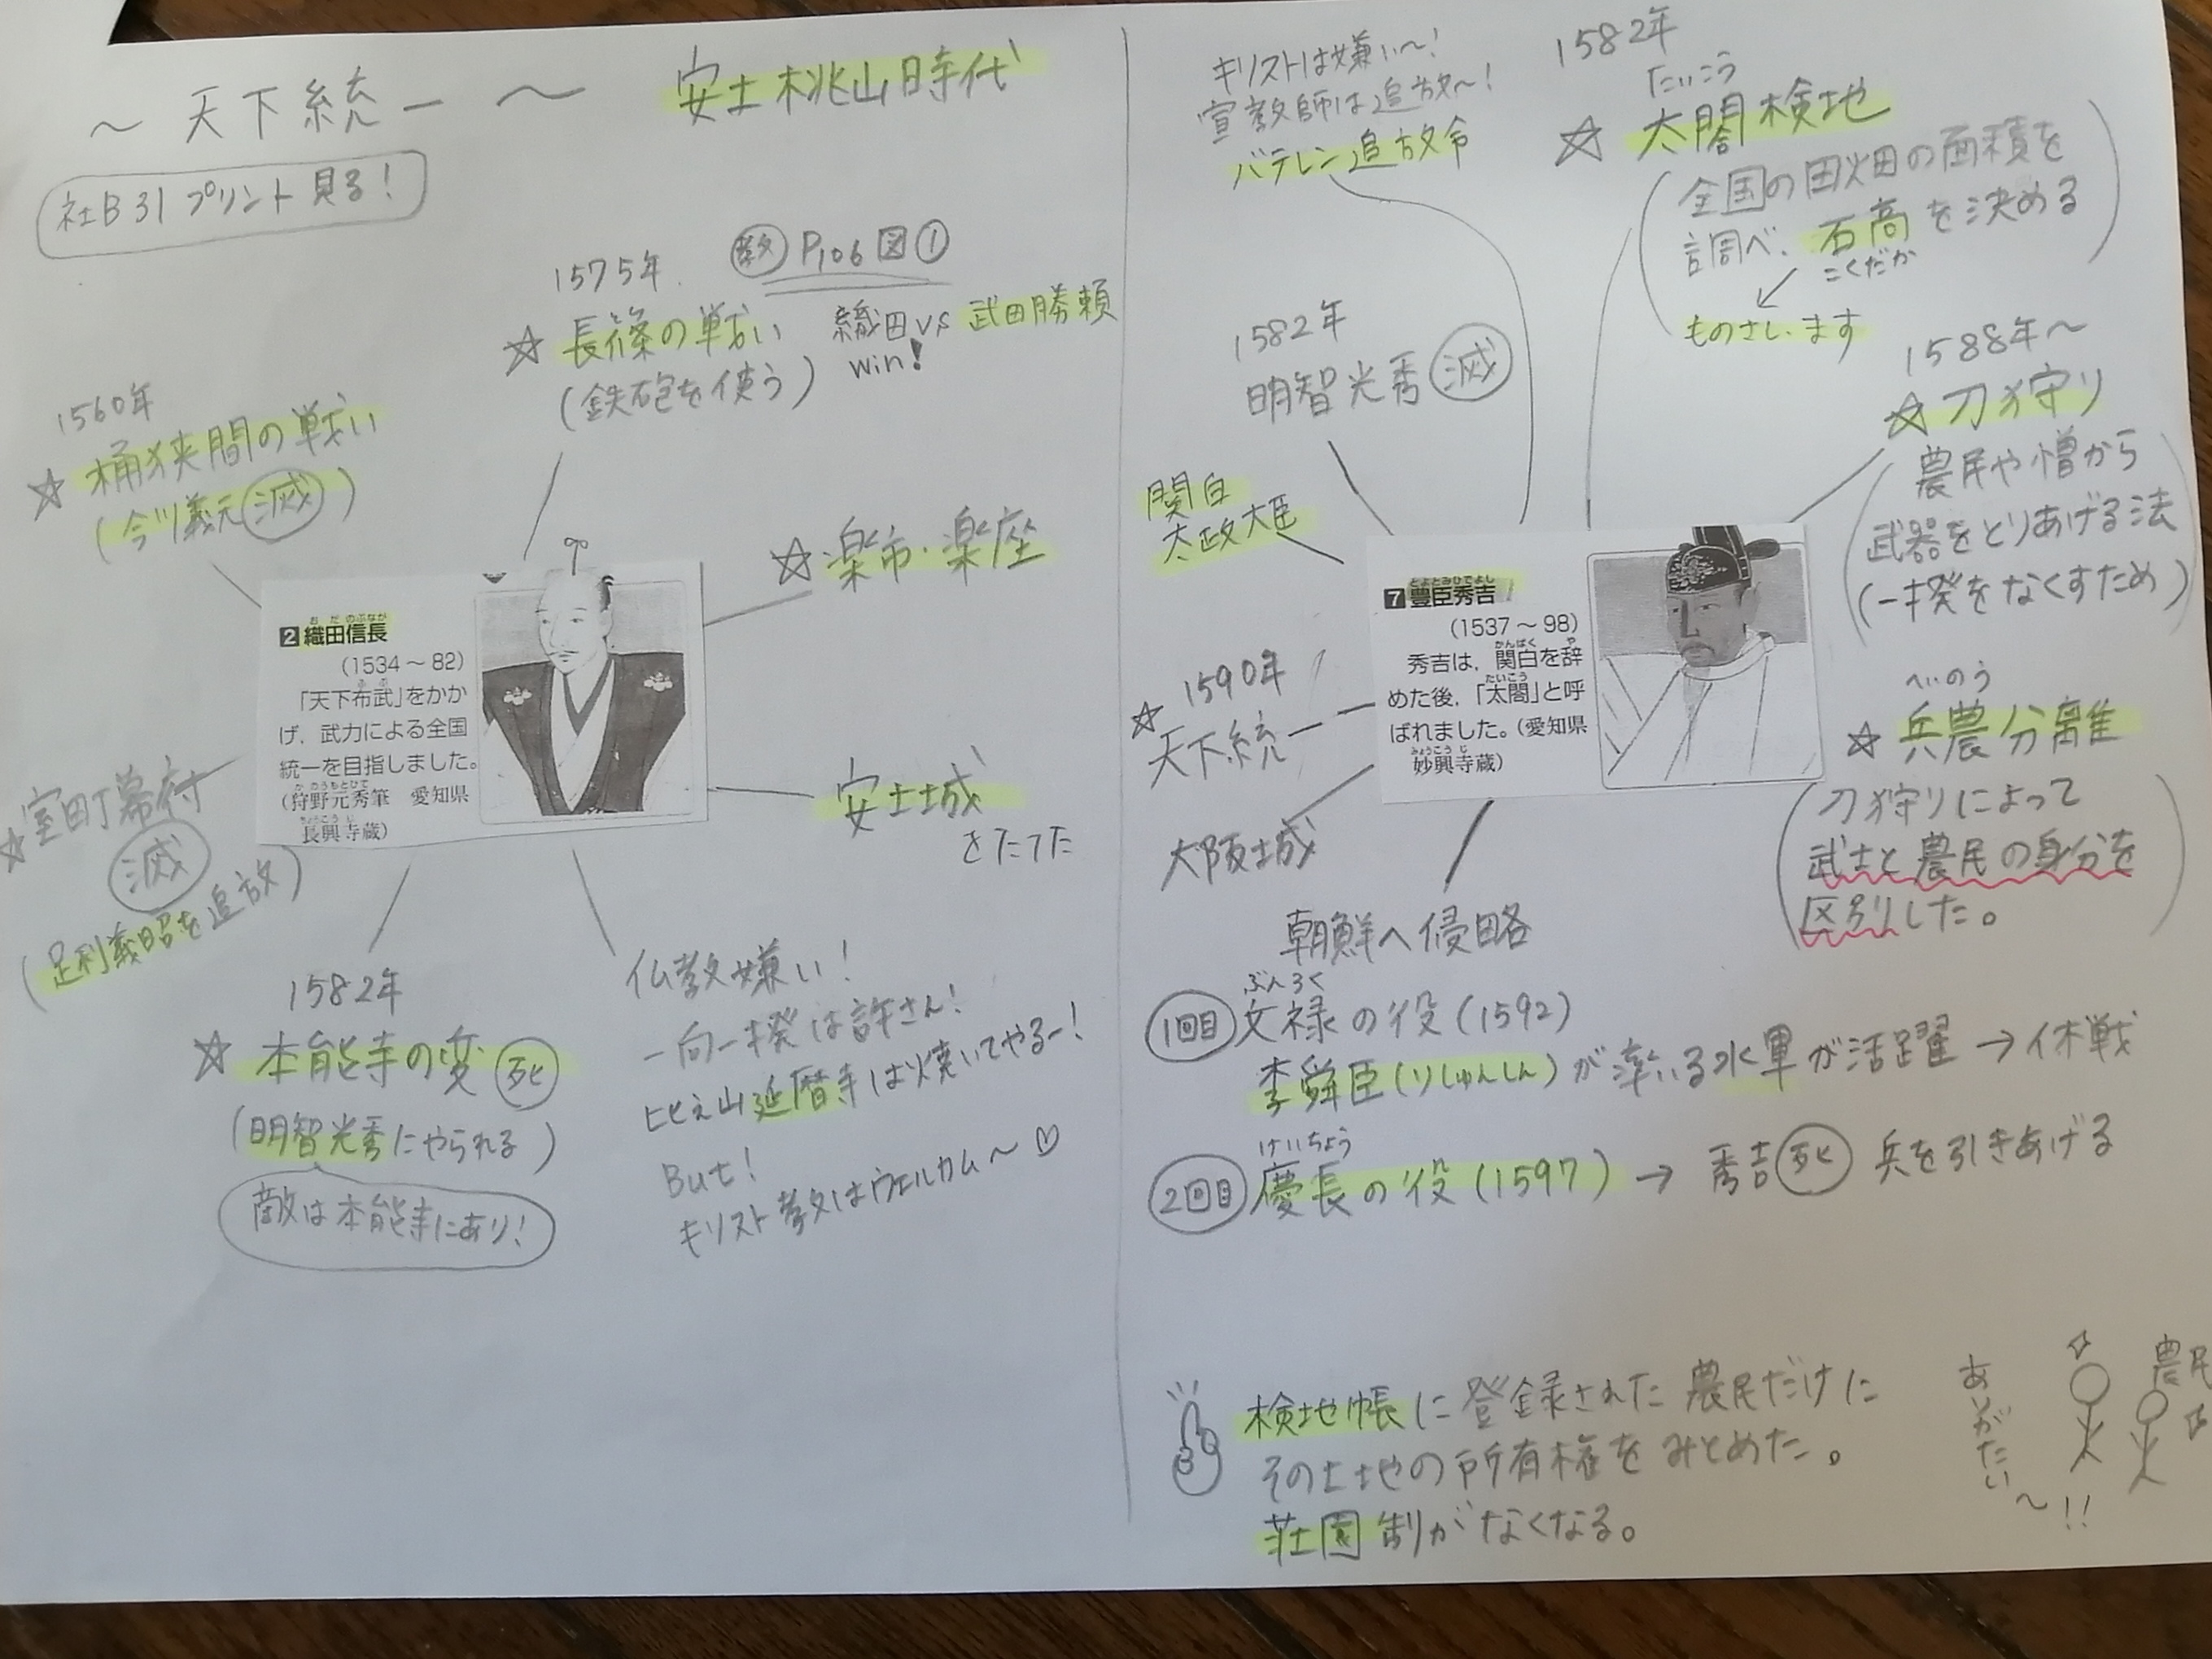 ～天下統一～ 安土桃山時代
社B31プリント見る!
1575年
教 P106 図①
☆長篠の戦い 織田vs武田勝頼
(鉄砲を使う) win!
1560年
☆桶狭間の戦い
(今川義元滅)
☆楽市・楽座
2 織田信長
おだのぶなが
(1534～82)
「天下布武」をかか
ふぶ
げ，武力による全国
統一を目指しました。
(狩野元秀筆 愛知県
かのうもとひで
長興寺蔵)
ちょうこうじ
安土城
をたてた
☆室町幕府
滅
(足利義昭を追放)
1582年
☆本能寺の変 死
(明智光秀にやられる)
敵は本能寺にあり!
仏教嫌い!
一向一揆は許さん!
比えい山延暦寺は焼いてやるー!
But!
キリスト教はウェルカム～♡
キリストは嫌い～!
宣教師は追放～!
バテレン追放令
1582年
たいこう
☆太閤検地
(全国の田畑の面積を
調べ、石高を決める)
こくだか
ものさし、ます
1582年
明智光秀 滅
1588年～
☆刀狩り
(農民や僧から
武器をとりあげる法
(一揆をなくすため))
関白
太政大臣
7 豊臣秀吉
とよとみひでよし
(1537～98)
秀吉は，関白を辞
かんぱく や
めた後，「太閤」と呼
たいこう
ばれました。(愛知県
妙興寺蔵)
みょうこうじ
1590年
☆天下統一
大阪城
へいのう
☆兵農分離
(刀狩りによって
武士と農民の身分を
区別した。)
朝鮮へ侵略
ぶんろく
1回目 文禄の役(1592)
李舜臣(りしゅんしん)が率いる水軍が活躍→休戦
けいちょう
2回目 慶長の役(1597)→秀吉死 兵を引きあげる
検地帳に登録された農民だけに
その土地の所有権をみとめた。
荘園制がなくなる。
ありがたい～!!
農民